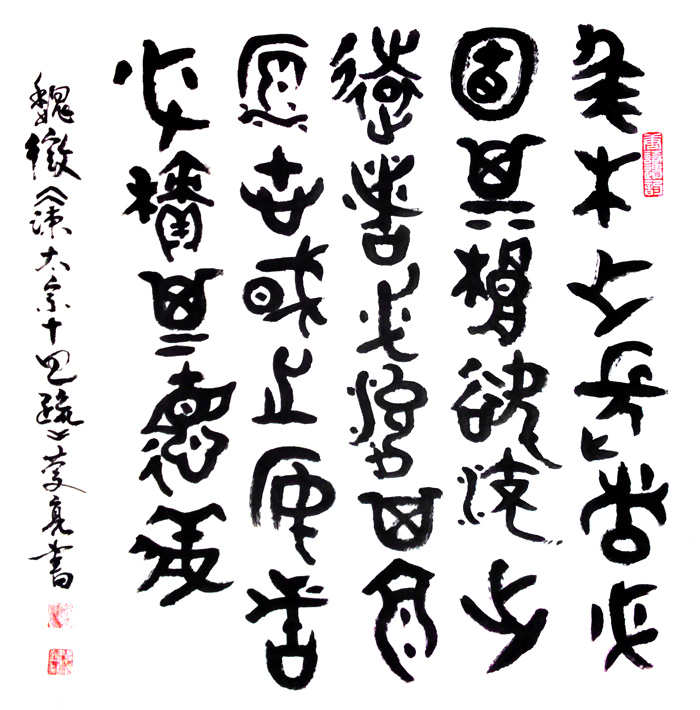 求木之長者必
固其根欲流之
遠者必浚其泉
源思國之安者
必積其德義
魏徵《諫太宗十思疏》亮書